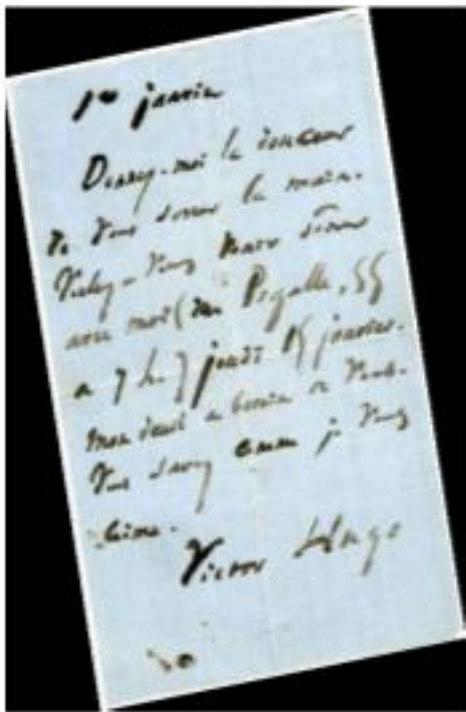 1er janvier
Donnez-moi la douceur
de vous serrer la main.
Voulez-vous dîner
avec moi (rue Pigalle, 55
à 7 h. jeudi 15 janvier.
Mon deuil a besoin de vous.
Vous savez comme je vous
aime.
Victor Hugo